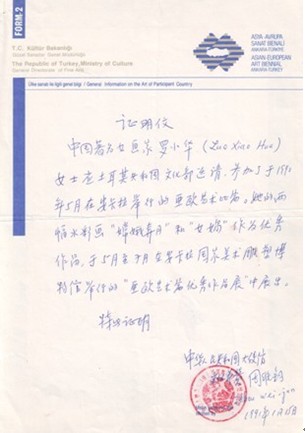 FORM-2
T.C. Kültür Bakanlığı
Güzel Sanatlar Genel Müdürlüğü
The Republic of Turkey, Ministry of Culture
General Directorate of Fine Arts
ASYA-AVRUPA
SANAT BİENALİ
ANKARA-TÜRKİYE
ASIAN-EUROPEAN
ART BIENNAL
ANKARA-TURKEY
Ülke sanatı ile ilgili genel bilgi / General Information on the Art of Participant Country
证明信
中国著名女画家罗小华 (Luo Xiao Hua)
女士应土耳其共和国文化部邀请，参加了于1990
年5月在安卡拉举行的亚欧艺术双年。她的两
幅水彩画“嫦娥奔月”和“女娲”作为优秀
作品，于5月至7月在安卡拉国家美术雕塑博
物馆举行的“亚欧艺术优秀作品展”中展出。
特此证明
中华人民共和国大使馆
周
1991年1月25日